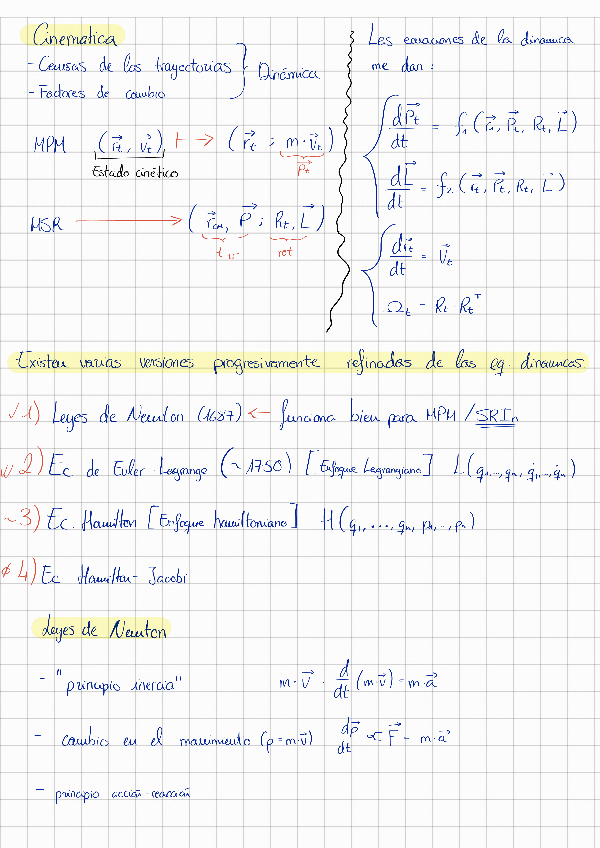 Cinematica
- Causas de las trayectorias
- Factores de cambio
} Dinámica
MPM (r⃗t, v⃗t) + → (r⃗t ; m·v⃗t)
Estado cinético
p⃗t
MSR → (r⃗cm, P⃗ ; Rt, L⃗)
rot
Les ecuaciones de la dinamica
me dan :
dP⃗t/dt = f₁ (r⃗t, P⃗t, Rt, L⃗)
dL⃗/dt = f₂ (r⃗t, P⃗t, Rt, L⃗)
dr⃗t/dt = v⃗t
Ωt = Ṙt Rtᵀ
Existen varias versiones progresivamente refinadas de las eq. dinamicas.
✓ 1) Leyes de Newton (1687) ← funciona bien para MPM / SRIn
✓ 2) Ec. de Euler-Lagrange (~1750) [Enfoque Lagrangiano] L(q₁,...,qn, q̇₁,...,q̇n)
~ 3) Ec. Hamilton [Enfoque hamiltoniano] H(q₁, ..., qn, p₁, .., pn)
4) Ec Hamilton-Jacobi
Leyes de Newton
- "principio inercia" m·v⃗ · d/dt (m·v⃗) = m·a⃗
- cambio en el movimiento (p = m·v⃗) dp⃗/dt ∝ F⃗ = m·a⃗
- principio acción-reacción